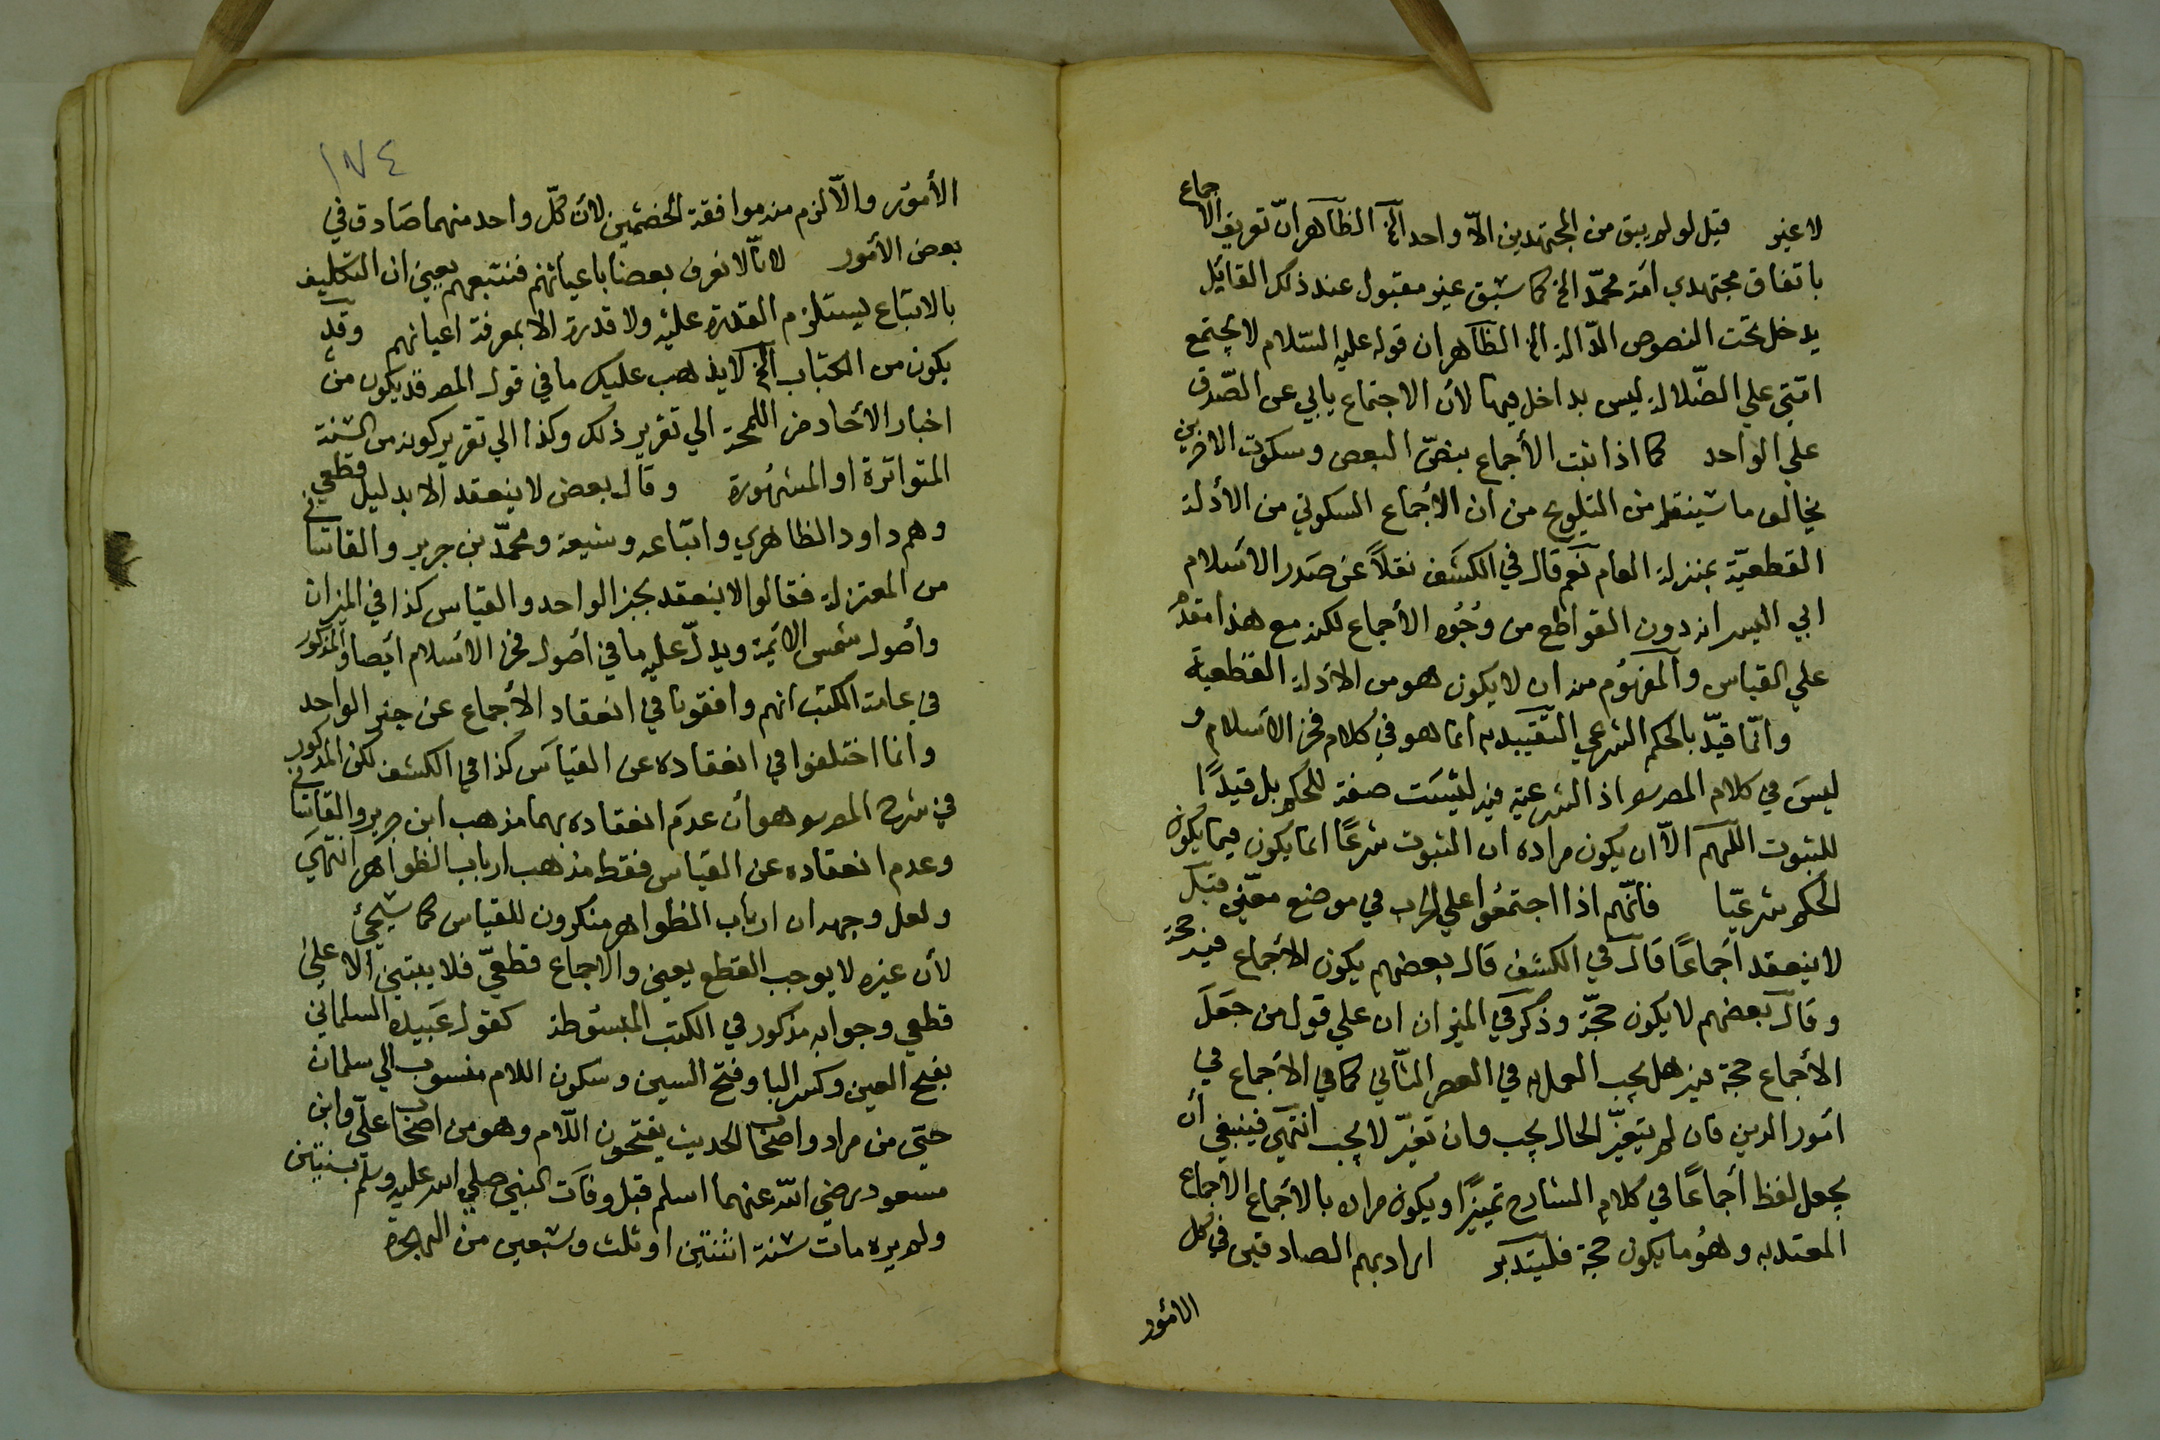 لا غير قيل لو لم يبق من المجتهدين الا واحد الخ الظاهر ان تعريف الاجماع
باتفاق مجتهدي امة محمد الخ كما سبق غير مقبول عند ذلك القائل
يدخل تحت النصوص الدالة الخ الظاهر ان قوله عليه السلام لا يجتمع
امتي علي الضلالة ليس بداخل فيها لأن الاجتماع يابي عن الصدق
علي الواحد كما اذا ثبت الأجماع بنص البعض وسكوت الاخرين
يخالف ما سينقله من التلويح من ان الأجماع السكوتي من الأدلة
القطعية بمنزلة العام نعم قال في الكشف نقلاً عن صدر الاسلام
ابي اليسر انه دون القواطع من وجوه الأجماع لكنه مع هذا مقدم
علي القياس والمفهوم منه ان لا يكون هو من الأدلة القطعية
وانما قيد بالحكم الشرعي التقييد به انما هو في كلام فخر الاسلام و
ليس في كلام المصر سوا اذ الشرعية فيه ليست صفة للحكم بل قيداً
للثبوت اللهم الا ان يكون مراده ان الثبوت شرعاً انما يكون فيما يكون
الحكم شرعياً فانهم اذا اجتمعوا علي الحراب في موضع معين قيل
لا ينعقد اجماعاً قال في الكشف قال بعضهم يكون الأجماع فيه حجة
وقال بعضهم لا يكون حجة وذكر في الميزان ان علي قول من جعل
الأجماع حجة فيه هل يجب العمل به في العصر الثاني كما في الأجماع في
امور الدين فان لم يتغير الحال يجب وان تغير لا يجب انتهي فينبغي أن
يجعل لفظ أجماعاً في كلام الشارح تمييزاً ويكون مراده بالأجماع الأجماع
المعتد به وهو ما يكون حجة فليتدبر اراد بهم الصادقين في كل
الامور
١٧٤
الأمور والا لزم منه موافقة الخصمين لان كل واحد منهما صادق في
بعض الأمور لانا لا نعرف بعضا باعيانهم فنتبعهم يعني ان التكليف
بالاتباع يستلزم القدرة عليه ولا قدرة الا بمعرفة اعيانهم وقد
يكون من الكتاب الخ لا يذهب عليك ما في قول المصر قد يكون من
اخبار الأحاد من اللمحة الي تقرير ذلك وكذا الي تقرير كونه من السنة
المتواترة او المشهورة وقال بعض لا ينعقد الا بدليل قطعي
وهم داود الظاهري واتباعه وشيعة ومحمد بن جرير والقاشاني
من المعتزلة فقالوا لا ينعقد بخبر الواحد والقياس كذا في الميزان
وأصول شمس الائمة ويدل عليه ما في أصول فخر الاسلام ايضا والمذكور
في عامة الكتب انهم وافقونا في انعقاد الأجماع عن خبر الواحد
وانما اختلفوا في انعقاده عن القياس كذا في الكشف لكن المذكور
في شرح المصر سو هو أن عدم انعقاده بهما مذهب ابن جرير والقاشاني
وعدم انعقاده عن القياس فقط مذهب ارباب الظواهر انتهي
ولعل وجهه ان ارباب الظواهر منكرون للقياس كما سيجئ
لأن غيره لا يوجب القطع يعني والاجماع قطعي فلا يبتني الا علي
قطعي وجوابه مذكور في الكتب المبسوطة كقول عبيدة السلماني
بفتح العين وكسر البا وفتح السين وسكون اللام منسوب الي سلمان
حي من مراد واصحاب الحديث يفتحون اللام وهو من اصحاب علي وابن
مسعود رضي الله عنهما اسلم قبل وفات النبي صلي الله عليه وسلم بسنتين
ولم يره مات سنة اثنتين او ثلث وسبعين من الهجرة